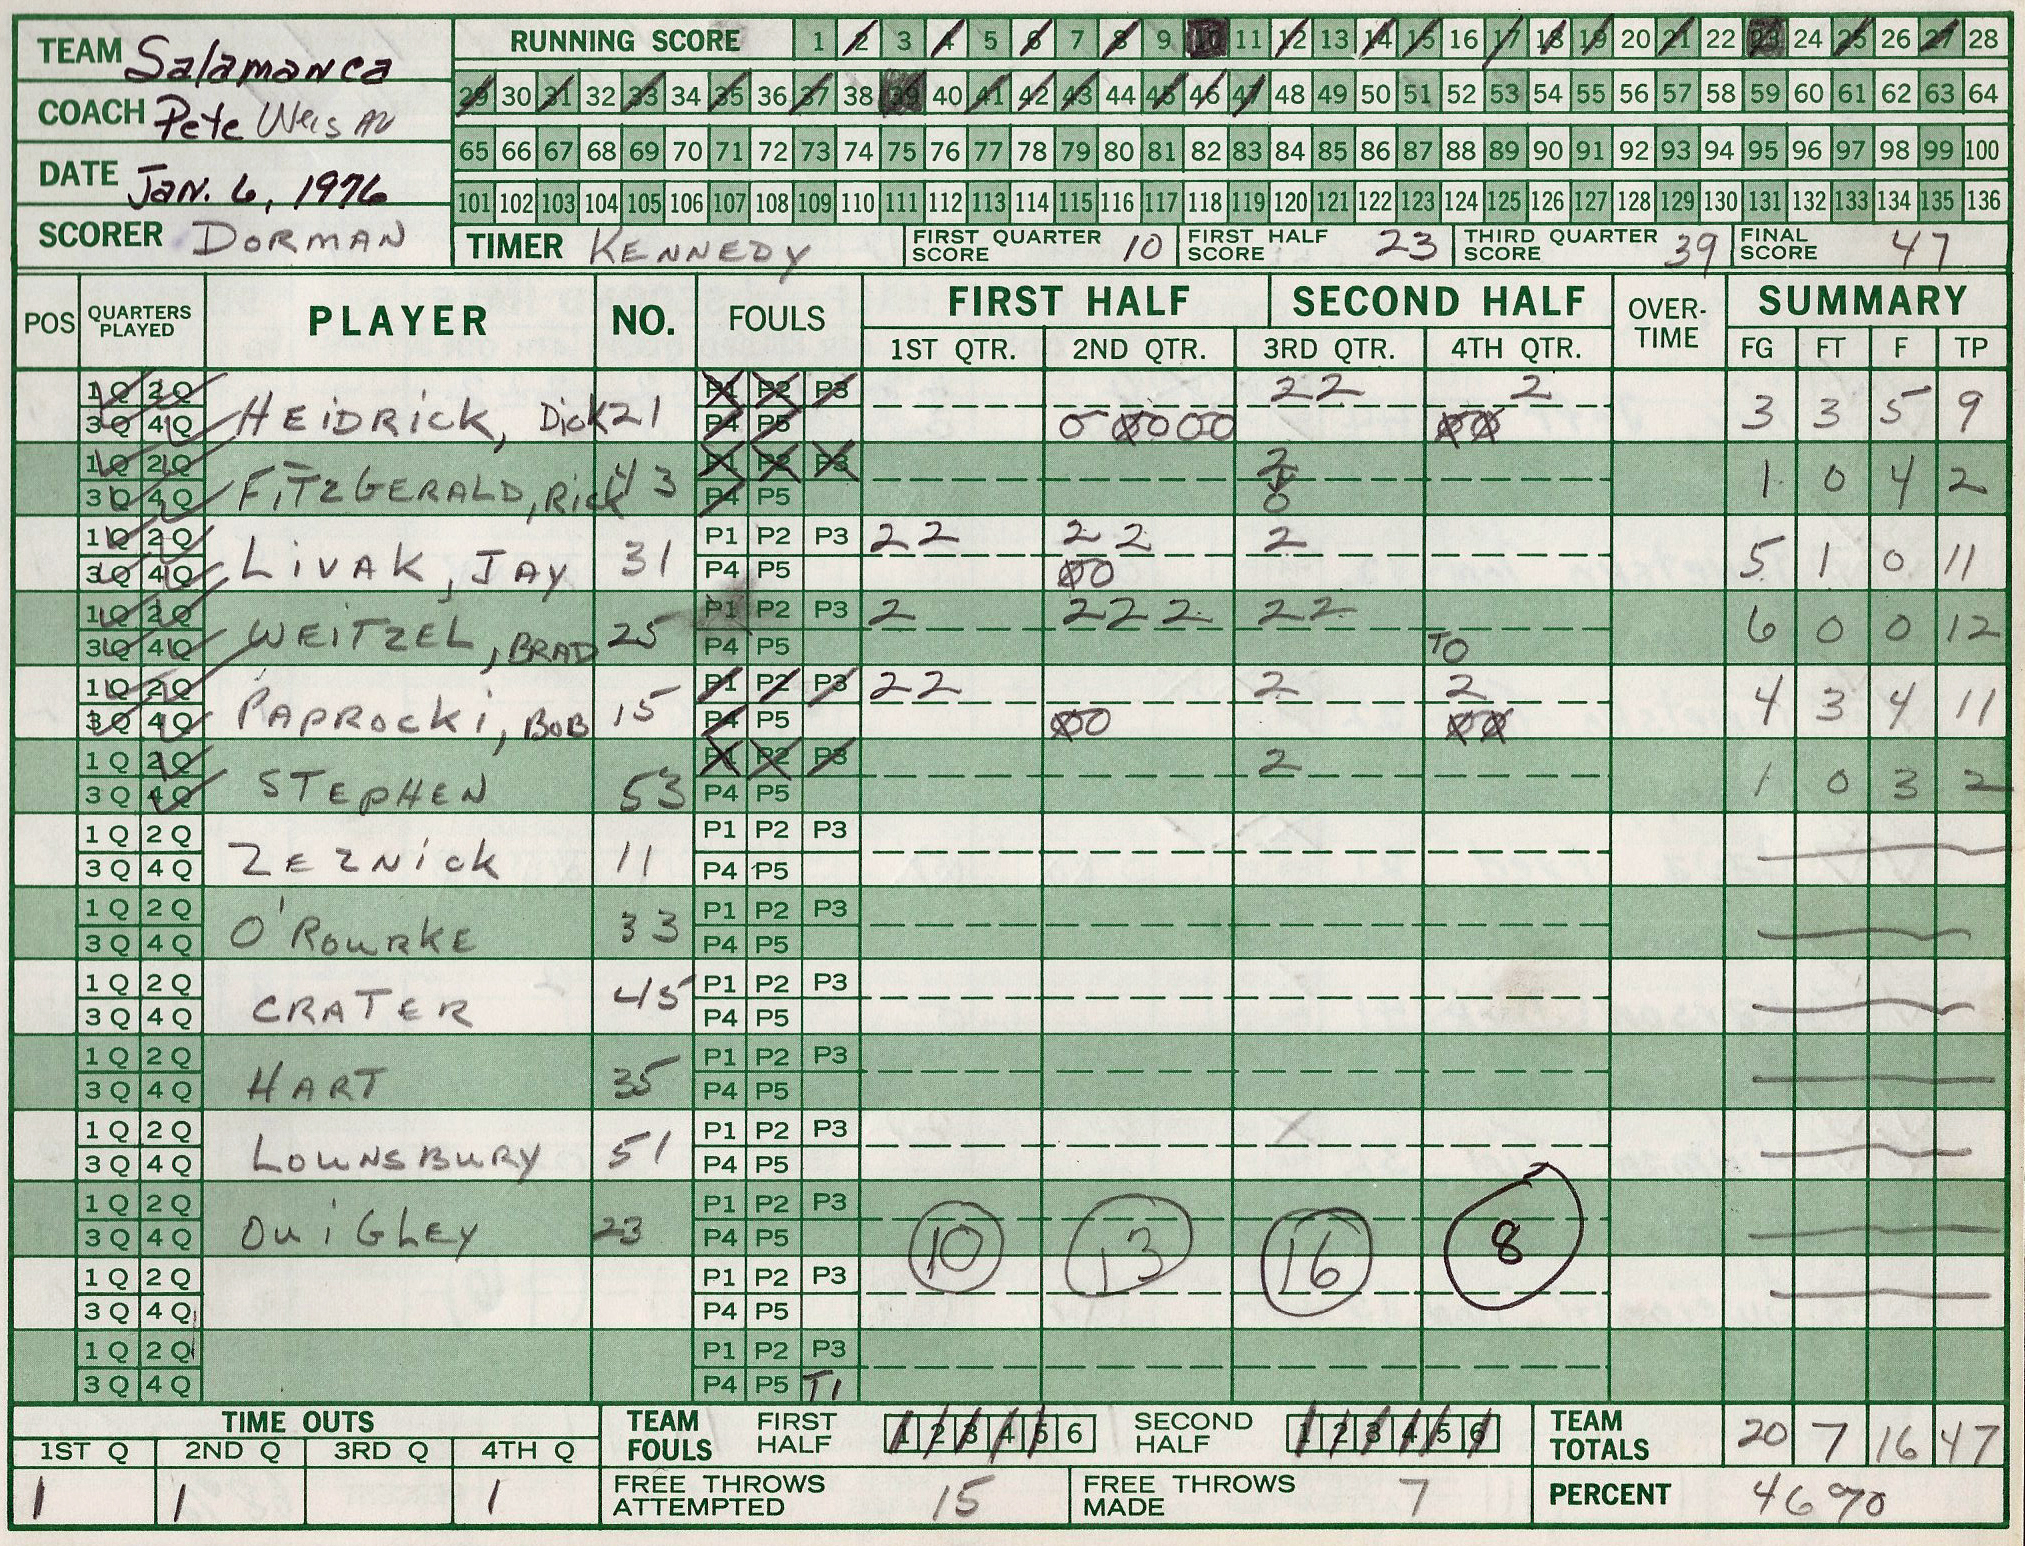 TEAM Salamanca
COACH Pete
DATE Jan. 6, 1976
SCORER DORMAN
RUNNING SCORE 1 2 3 4 5 6 7 8 9 10 11 12 13 14 15 16 17 18 19 20 21 22 23 24 25 26 27 28
29 30 31 32 33 34 35 36 37 38 39 40 41 42 43 44 45 46 47 48 49 50 51 52 53 54 55 56 57 58 59 60 61 62 63 64
65 66 67 68 69 70 71 72 73 74 75 76 77 78 79 80 81 82 83 84 85 86 87 88 89 90 91 92 93 94 95 96 97 98 99 100
101 102 103 104 105 106 107 108 109 110 111 112 113 114 115 116 117 118 119 120 121 122 123 124 125 126 127 128 129 130 131 132 133 134 135 136
TIMER KENNEDY FIRST QUARTER SCORE 10 FIRST HALF SCORE 23 THIRD QUARTER SCORE 39 FINAL SCORE 47
POS QUARTERS PLAYED PLAYER NO. FOULS FIRST HALF SECOND HALF OVER-TIME SUMMARY
1ST QTR. 2ND QTR. 3RD QTR. 4TH QTR. FG FT F TP
1Q 2Q P1 P2 P3 2 2 2
3Q 4Q HEIDRICK, Dick 21 P4 P5 0 0 0 0 0 0 0 3 3 5 9
1Q 2Q P1 P2 P3 2
3Q 4Q FITZGERALD, Rick 43 P4 P5 0 1 0 4 2
1Q 2Q P1 P2 P3 2 2 2 2 2
3Q 4Q LIVAK, JAY 31 P4 P5 0 0 5 1 0 11
1Q 2Q P1 P2 P3 2 2 2 2 2 2
3Q 4Q WEITZEL, BRAD 25 P4 P5 TO 6 0 0 12
1Q 2Q P1 P2 P3 2 2 2 2
3Q 4Q PAPROCKI, BOB 15 P4 P5 0 0 0 0 4 3 4 11
1Q 2Q P1 P2 P3 2
3Q 4Q STEPHEN 53 P4 P5 1 0 3 2
1Q 2Q P1 P2 P3
3Q 4Q ZEZNICK 11 P4 P5
1Q 2Q P1 P2 P3
3Q 4Q O'ROURKE 33 P4 P5
1Q 2Q P1 P2 P3
3Q 4Q CRATER 45 P4 P5
1Q 2Q P1 P2 P3
3Q 4Q HART 35 P4 P5
1Q 2Q P1 P2 P3
3Q 4Q LOUNSBURY 51 P4 P5
1Q 2Q P1 P2 P3
3Q 4Q QUIGLEY 23 P4 P5 10 13 16 8
1Q 2Q P1 P2 P3
3Q 4Q P4 P5
1Q 2Q P1 P2 P3
3Q 4Q P4 P5 T1
TIME OUTS TEAM FOULS FIRST HALF 1 2 3 4 5 6 SECOND HALF 1 2 3 4 5 6 TEAM TOTALS 20 7 16 47
1ST Q 2ND Q 3RD Q 4TH Q
1 1 1 FREE THROWS ATTEMPTED 15 FREE THROWS MADE 7 PERCENT 46%